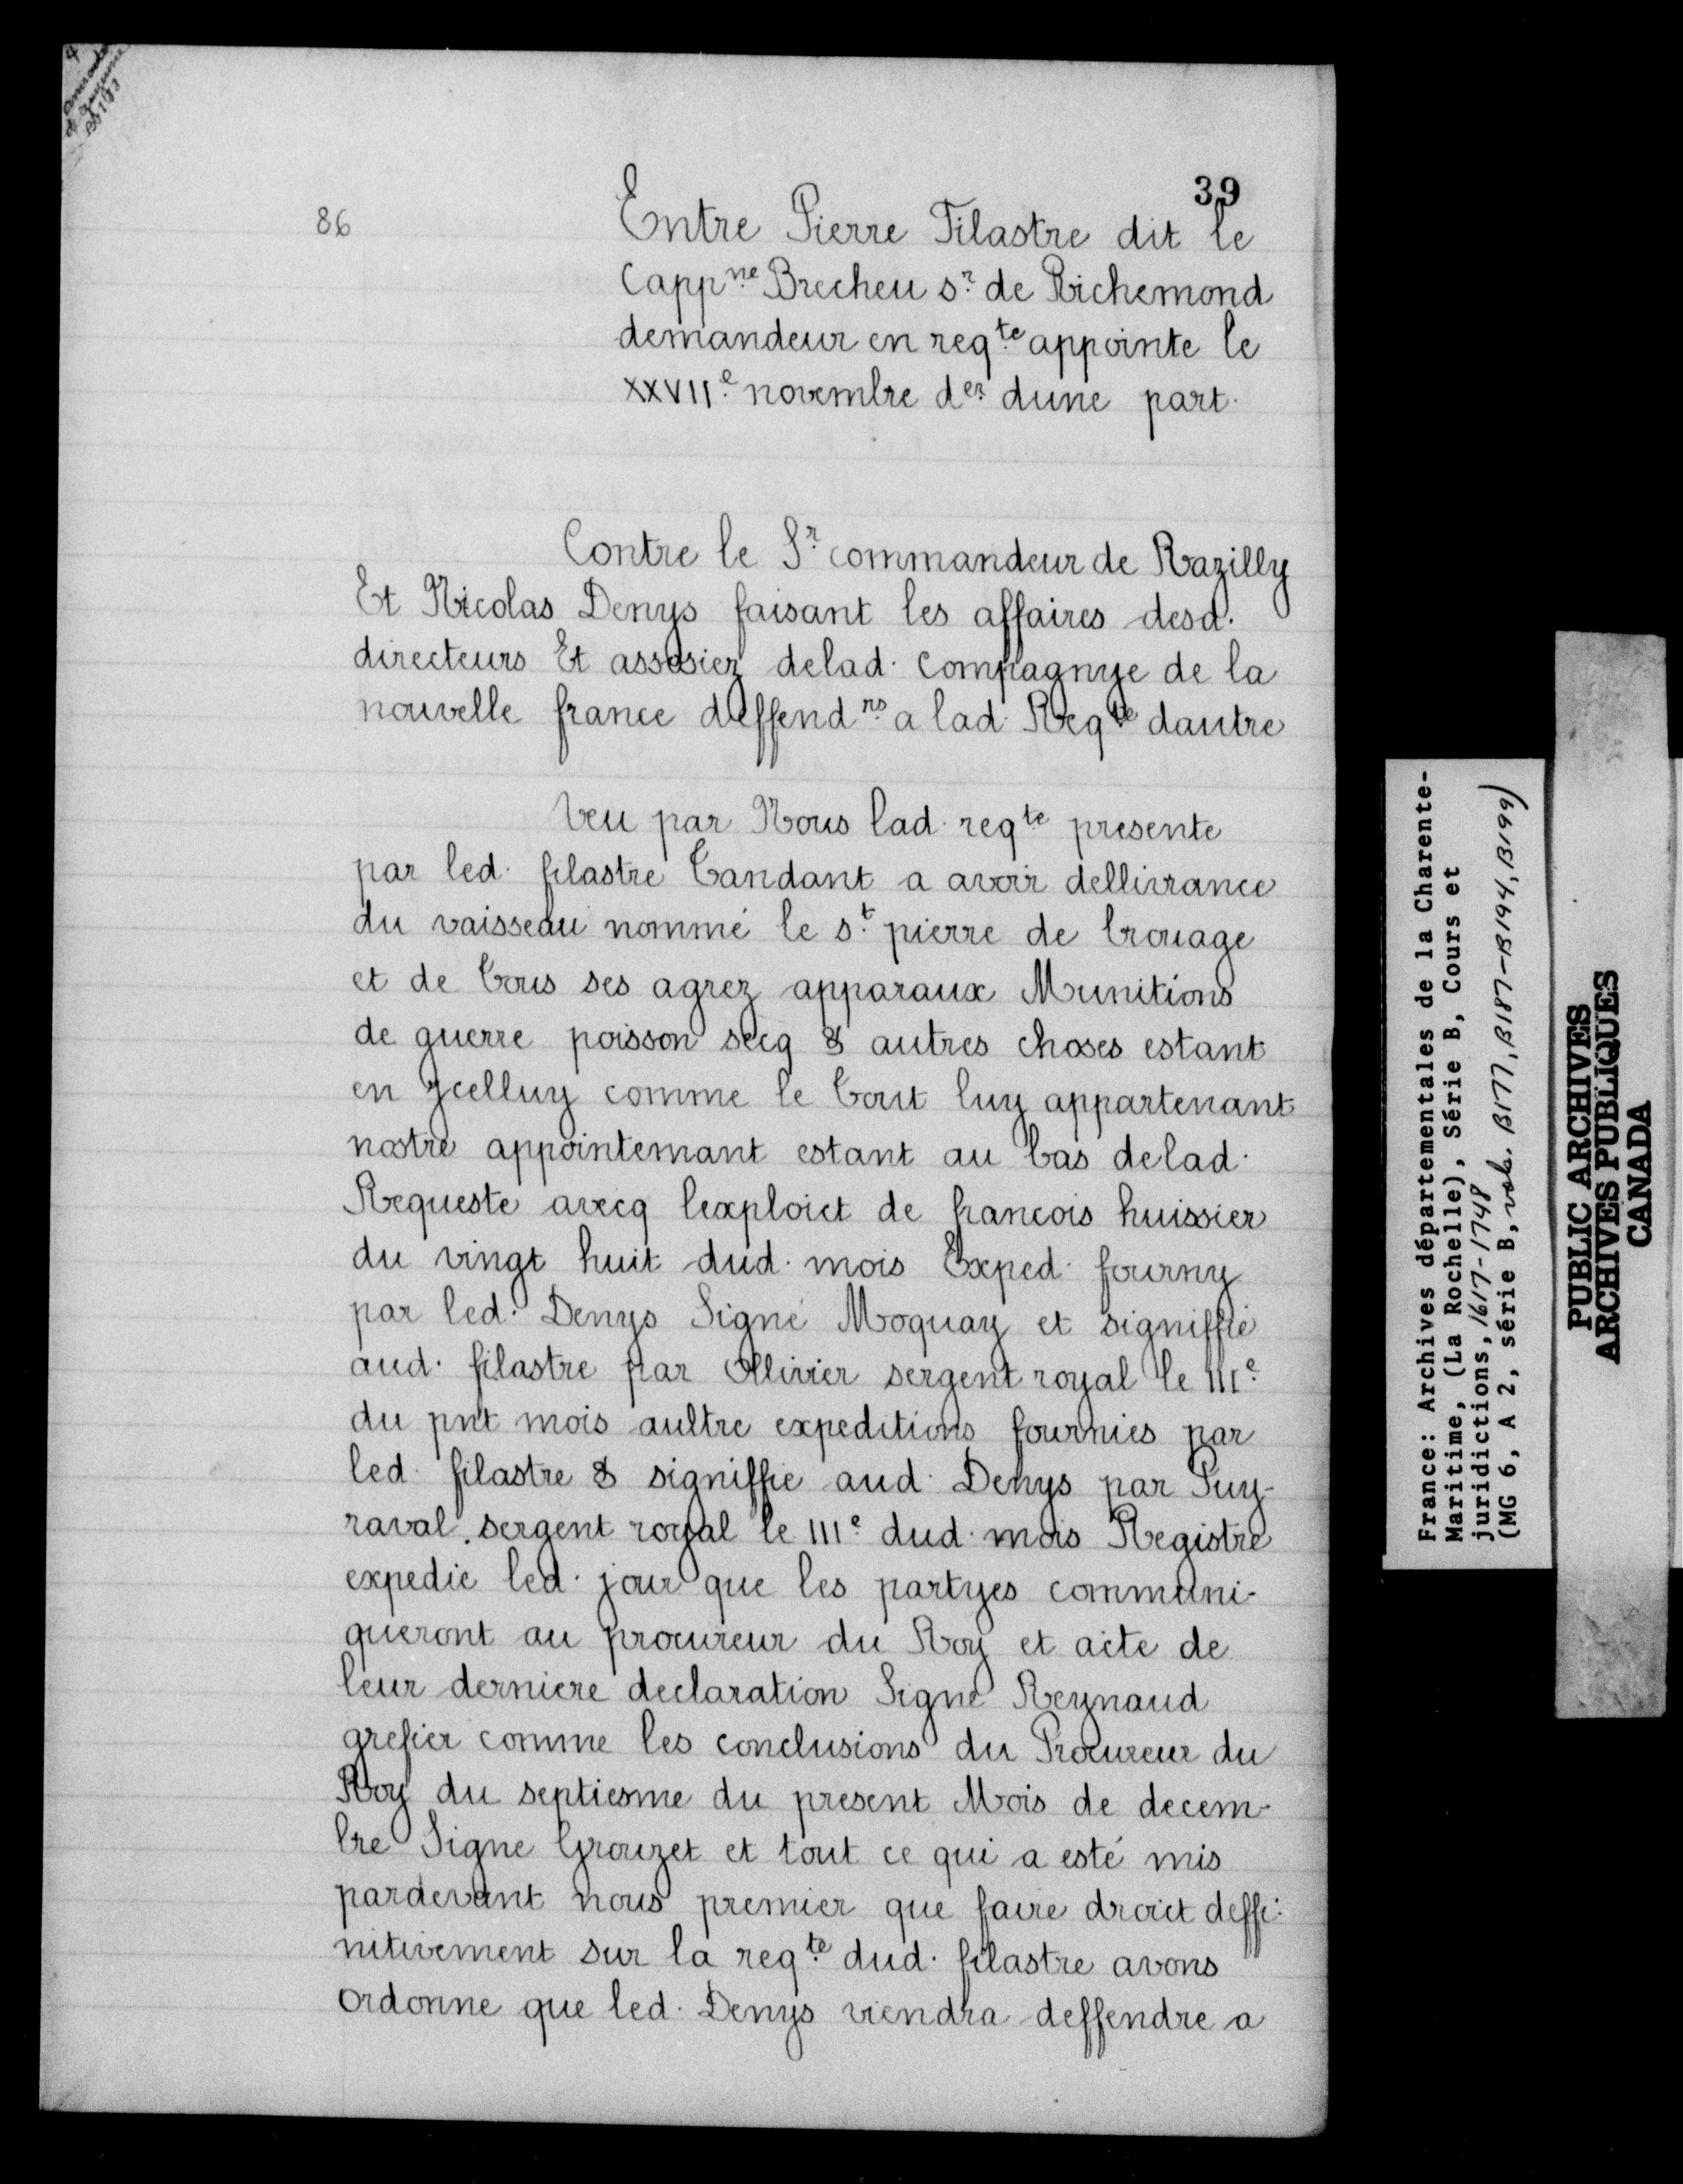 4
amirauté
de guyenne
B5193
39
86
Entre Pierre Filastre dit le
Capp^ne Brecheu s^r de Richemond
demandeur en req^te appointe le
XXVII^e novembre d^er dune part.
Contre le S^r commandeur de Razilly
Et Nicolas Denys faisant les affaires desd.
directeurs Et assosiez delad. compagnye de la
nouvelle france deffend^rs a lad. Req^te dautre
Veu par Nous lad. req^te presente
par led. filastre Tandant a avoir dellivrance
du vaisseau nommé le s^t pierre de brouage
et de Tous ses agrez apparaux Munitions
de guerre poisson secq & autres choses estant
en ycelluy comme le Tout luy appartenant
nostre appointemant estant au bas delad.
Requeste avecq lexploict de francois huissier
du vingt huit dud. mois Exped. fourny
par led. Denys Signé Moquay et signiffié
aud. filastre par Ollivier sergent royal le III^e
du pnt mois aultre expeditions fournies par
led. filastre & signiffie aud. Denys par Puy-
raval. sergent royal le III^e dud. mois Registre
expedié led. jour que les partyes communi-
queront au procureur du Roy et acte de
leur derniere declaration Signé Reynaud
grefier comme les conclusions du Procureur du
Roy du septiesme du present Mois de decem-
bre Signe Grouzet et tout ce qui a esté mis
pardevant nous premier que faire droict deffi-
nitivement sur la req^te dud. filastre avons
ordonne que led. Denys viendra deffendre a
France: Archives départementales de la Charente-
Maritime, (La Rochelle), Série B, Cours et
juridictions, 1617-1748
(MG 6, A 2, série B, vols. B177, B187-B194, B199)
PUBLIC ARCHIVES
ARCHIVES PUBLIQUES
CANADA